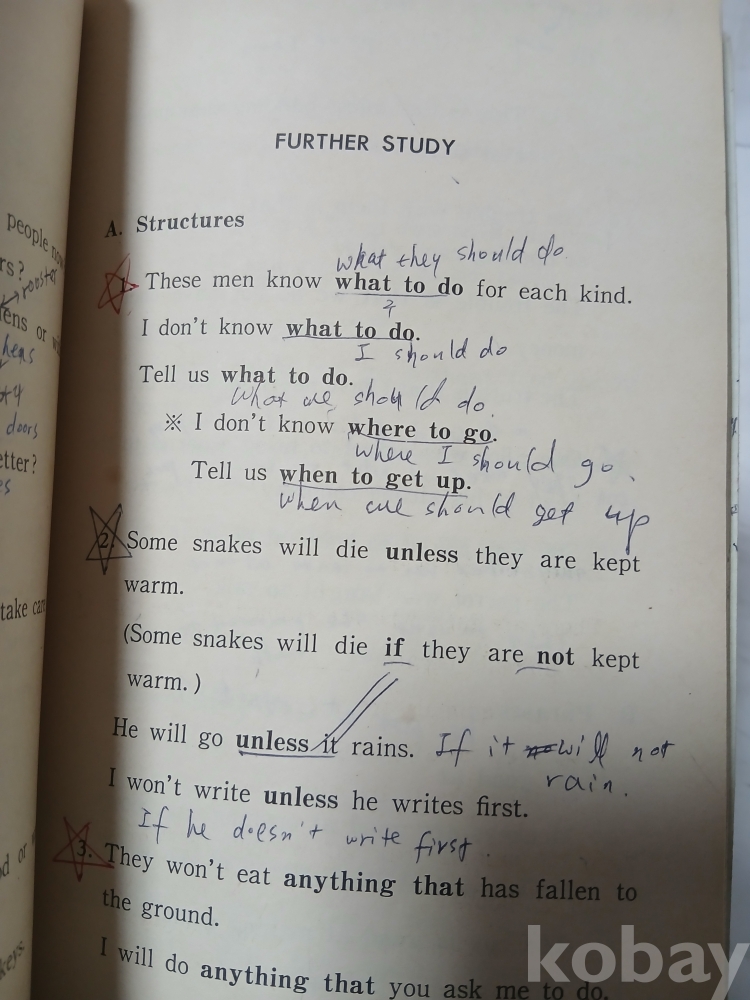 FURTHER STUDY
A. Structures
what they should do
1. These men know what to do for each kind.
I don't know what to do.
I should do
Tell us what to do.
what we should do.
※ I don't know where to go.
where I should go.
Tell us when to get up.
when we should get up
2. Some snakes will die unless they are kept
warm.
(Some snakes will die if they are not kept
warm.)
He will go unless it rains. If it will not
rain.
I won't write unless he writes first.
If he doesn't write first.
3. They won't eat anything that has fallen to
the ground.
I will do anything that you ask me to do.
people
rs?
rooster
ens or
hens
doors
etter?
take
keys
kobay